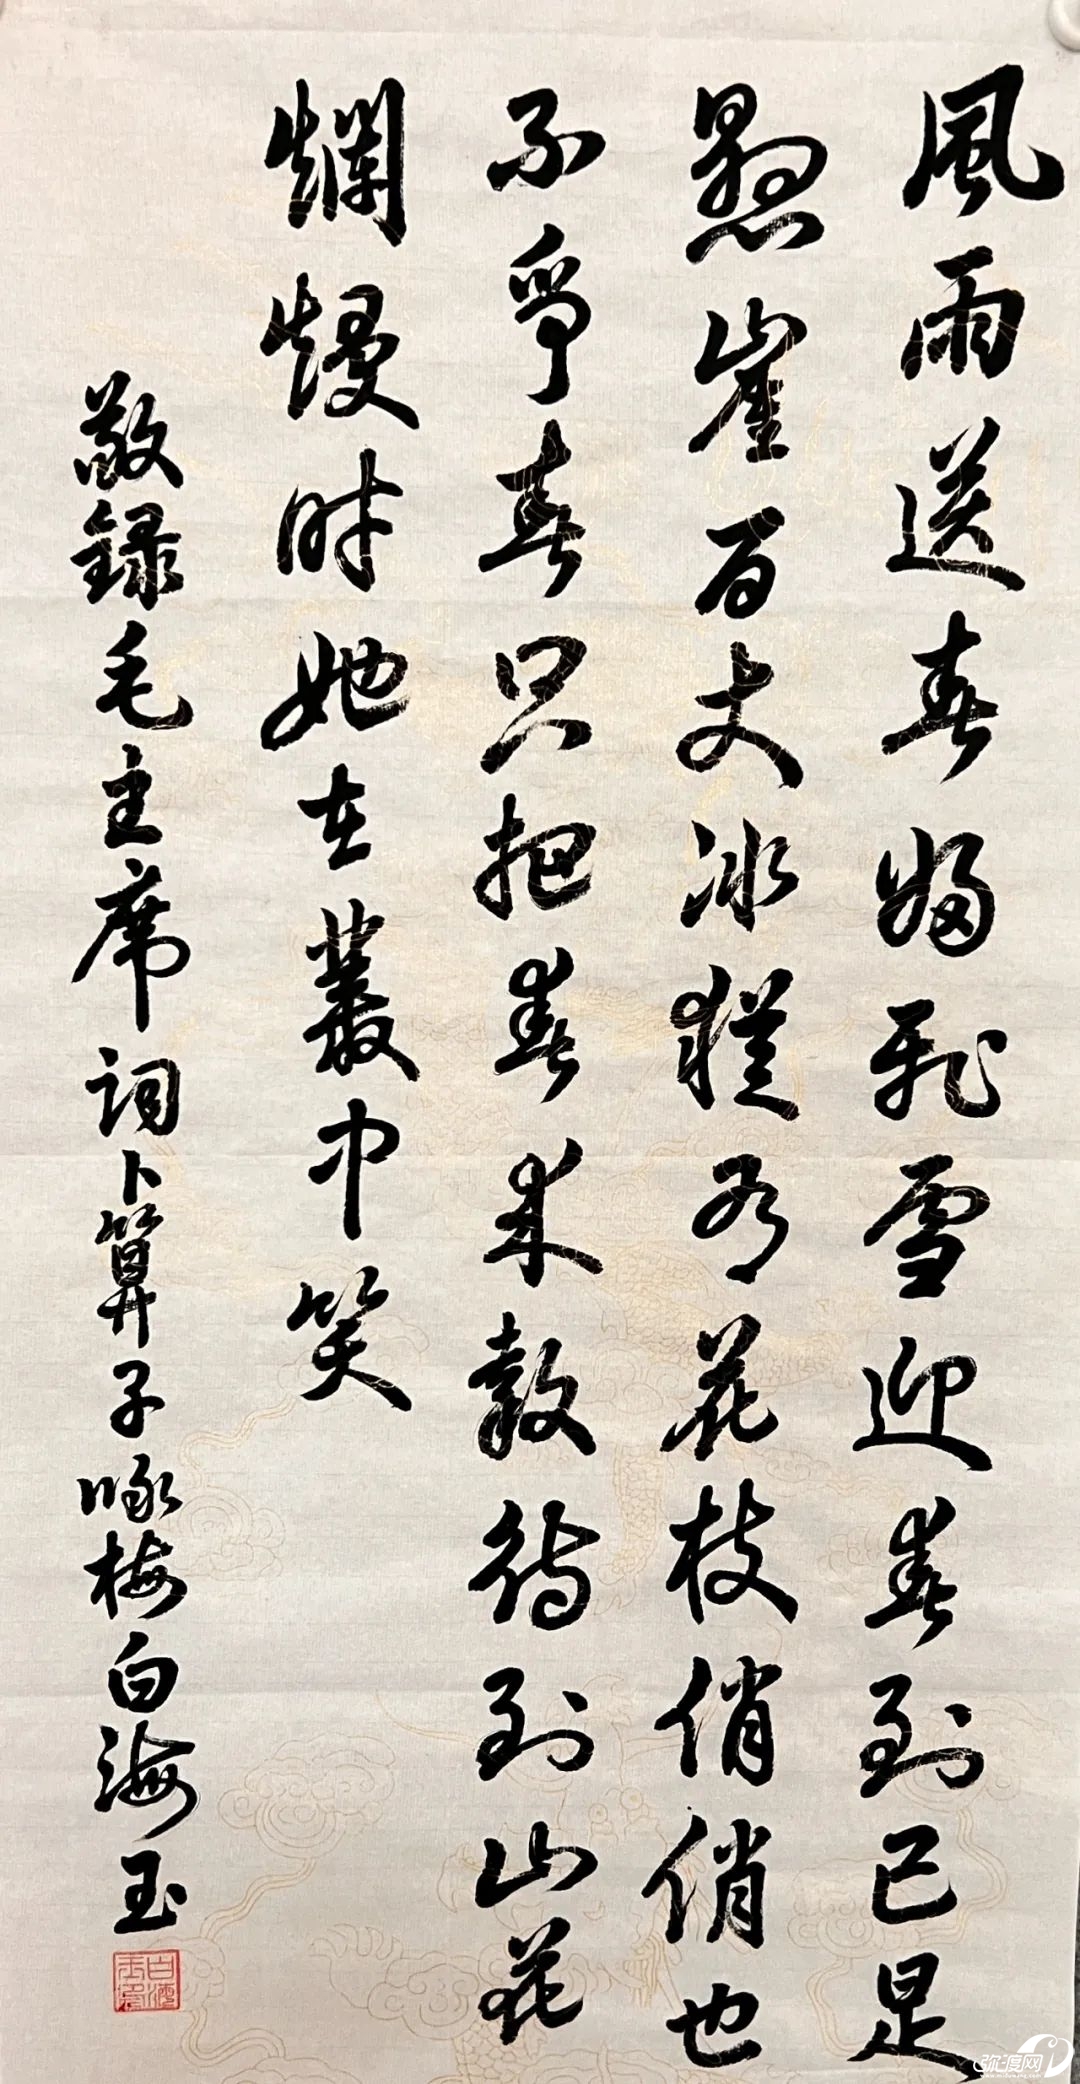 風雨送春歸飛雪迎春到已是
懸崖百丈冰猶有花枝俏俏也
不爭春只把春來報待到山花
爛熳時她在叢中笑
敬録毛主席詞卜算子咏梅白海玉
弥渡网